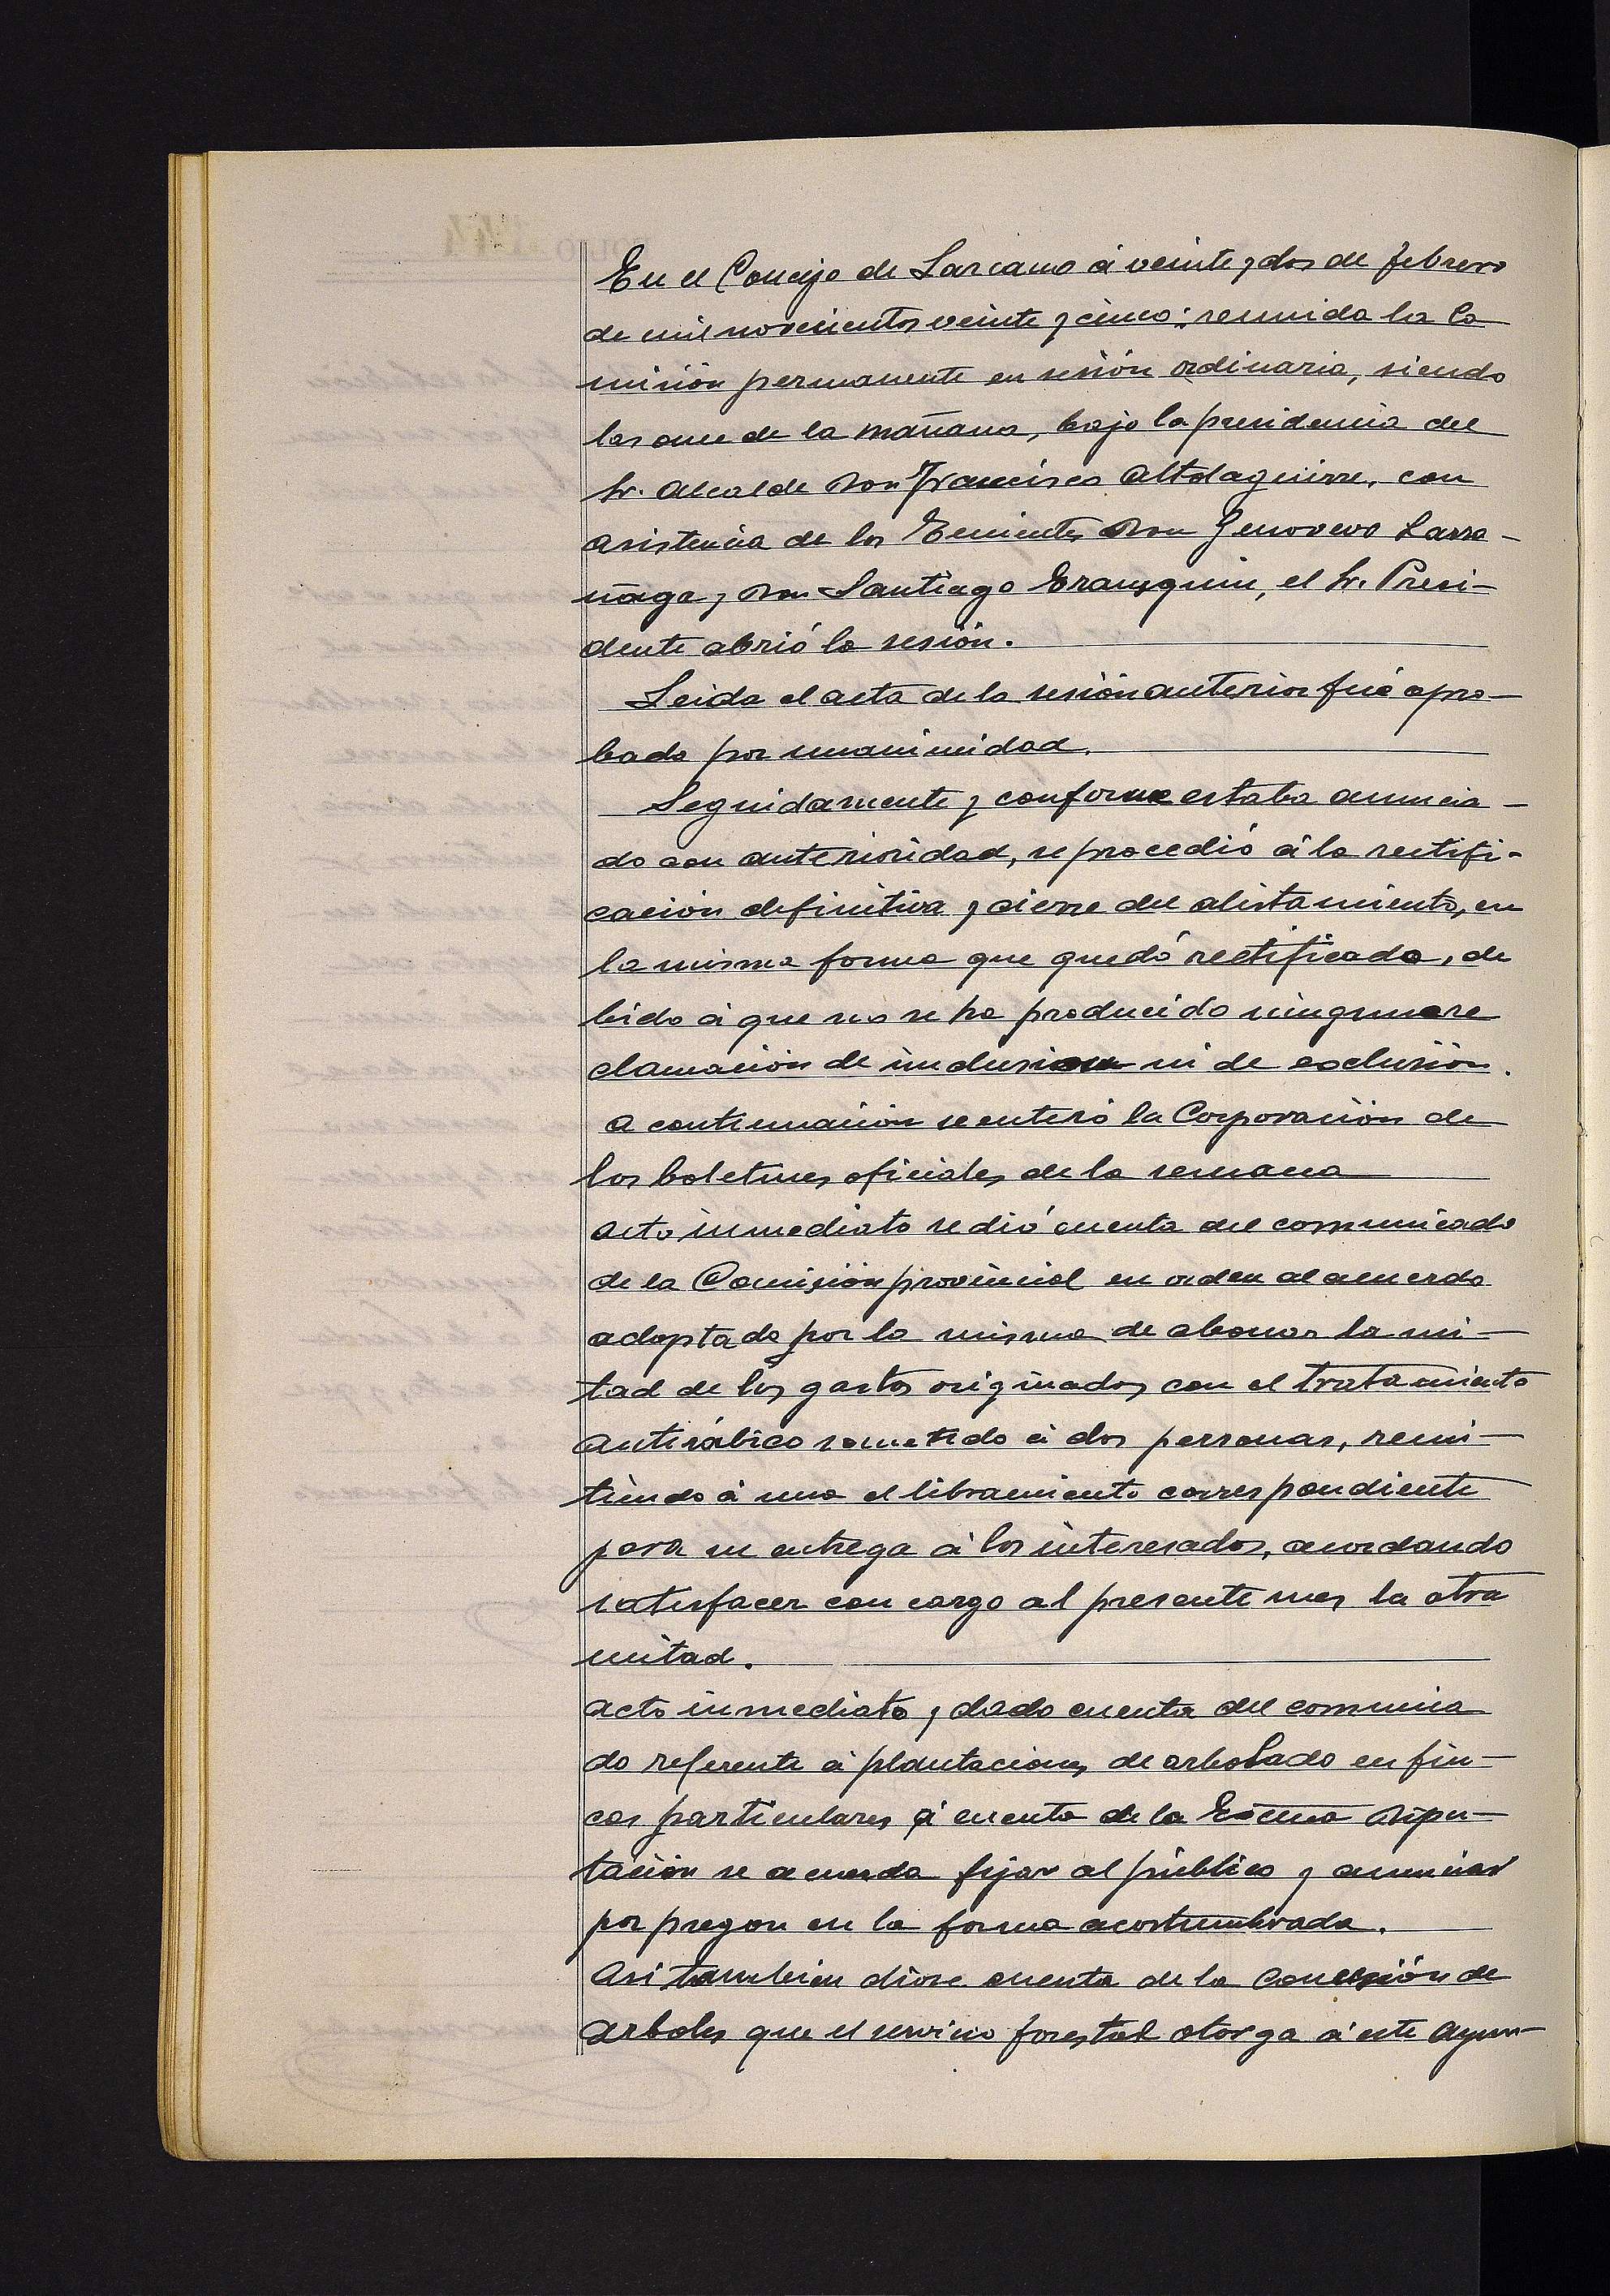 En el Concejo de Lazcano á veinte y dos de febrero
de mil novecientos veinte y cinco: reunida la Co
misión permanente en sesión ordinaria, siendo
las once de la mañana, bajo la presidencia del
Sr. Alcalde Don Francisco Altolaguirre, con
asistencia de los Tenientes Don Genovevo Larra-
ñaga y Don Santiago Erausquin, el Sr. Presi-
dente abrió la sesión.
Leida el acta de la sesión anterior fué apro-
bada por unanimidad.
Seguidamente y conforme estaba anuncia-
do con anterioridad, se procedió á la rectifi-
cación definitiva y cierre del alistamiento, en
la misma forma que quedó rectificado, de
bido á que no se ha producido ninguna re
clamación de inclusion ni de exclusión.
A continuación se enteró la Corporación de
los boletines oficiales de la semana
Acto inmediato se dió cuenta del comunicado
de la Comisión provincial en orden al acuerdo
adoptado por la misma de abonar la mi-
tad de los gastos originados con el tratamiento
antirábico sometido á dos personas, remi-
tiendo á una el libramiento correspondiente
para su entrega á los interesados, acordando
satisfacer con cargo al presente mes la otra
mitad.
Acto inmediato y dado cuenta del comunica
do referente á plantaciones de arbolado en fin-
cas particulares á cuenta de la Excma Dipu-
tación se acuerda fijar al público y anunciar
por pregon en la forma acostumbrada.
Asi tambien dióse cuenta de la concesión de
arboles que el servicio forestal otorga á este Ayun-